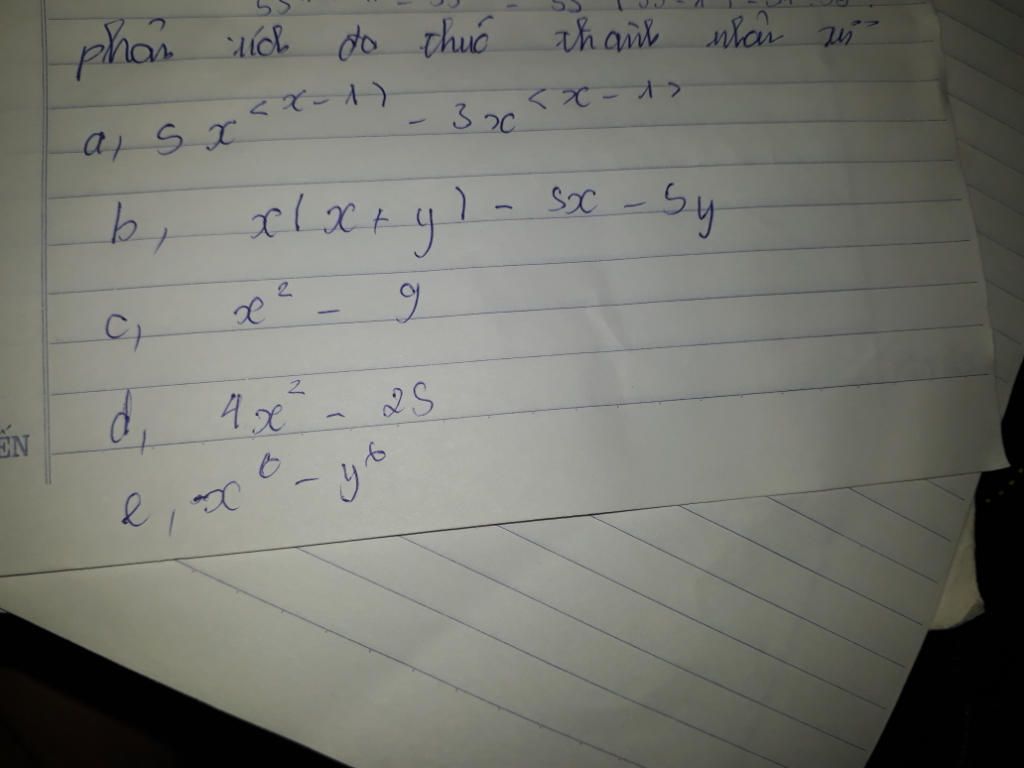 phân tích đa thức thành nhân tử
a, 5x^<x-1) - 3x^<x-1>
b, x(x+y) - 5x - 5y
c, x² - 9
d, 4x² - 25
ẾN
e, x⁶ - y⁶